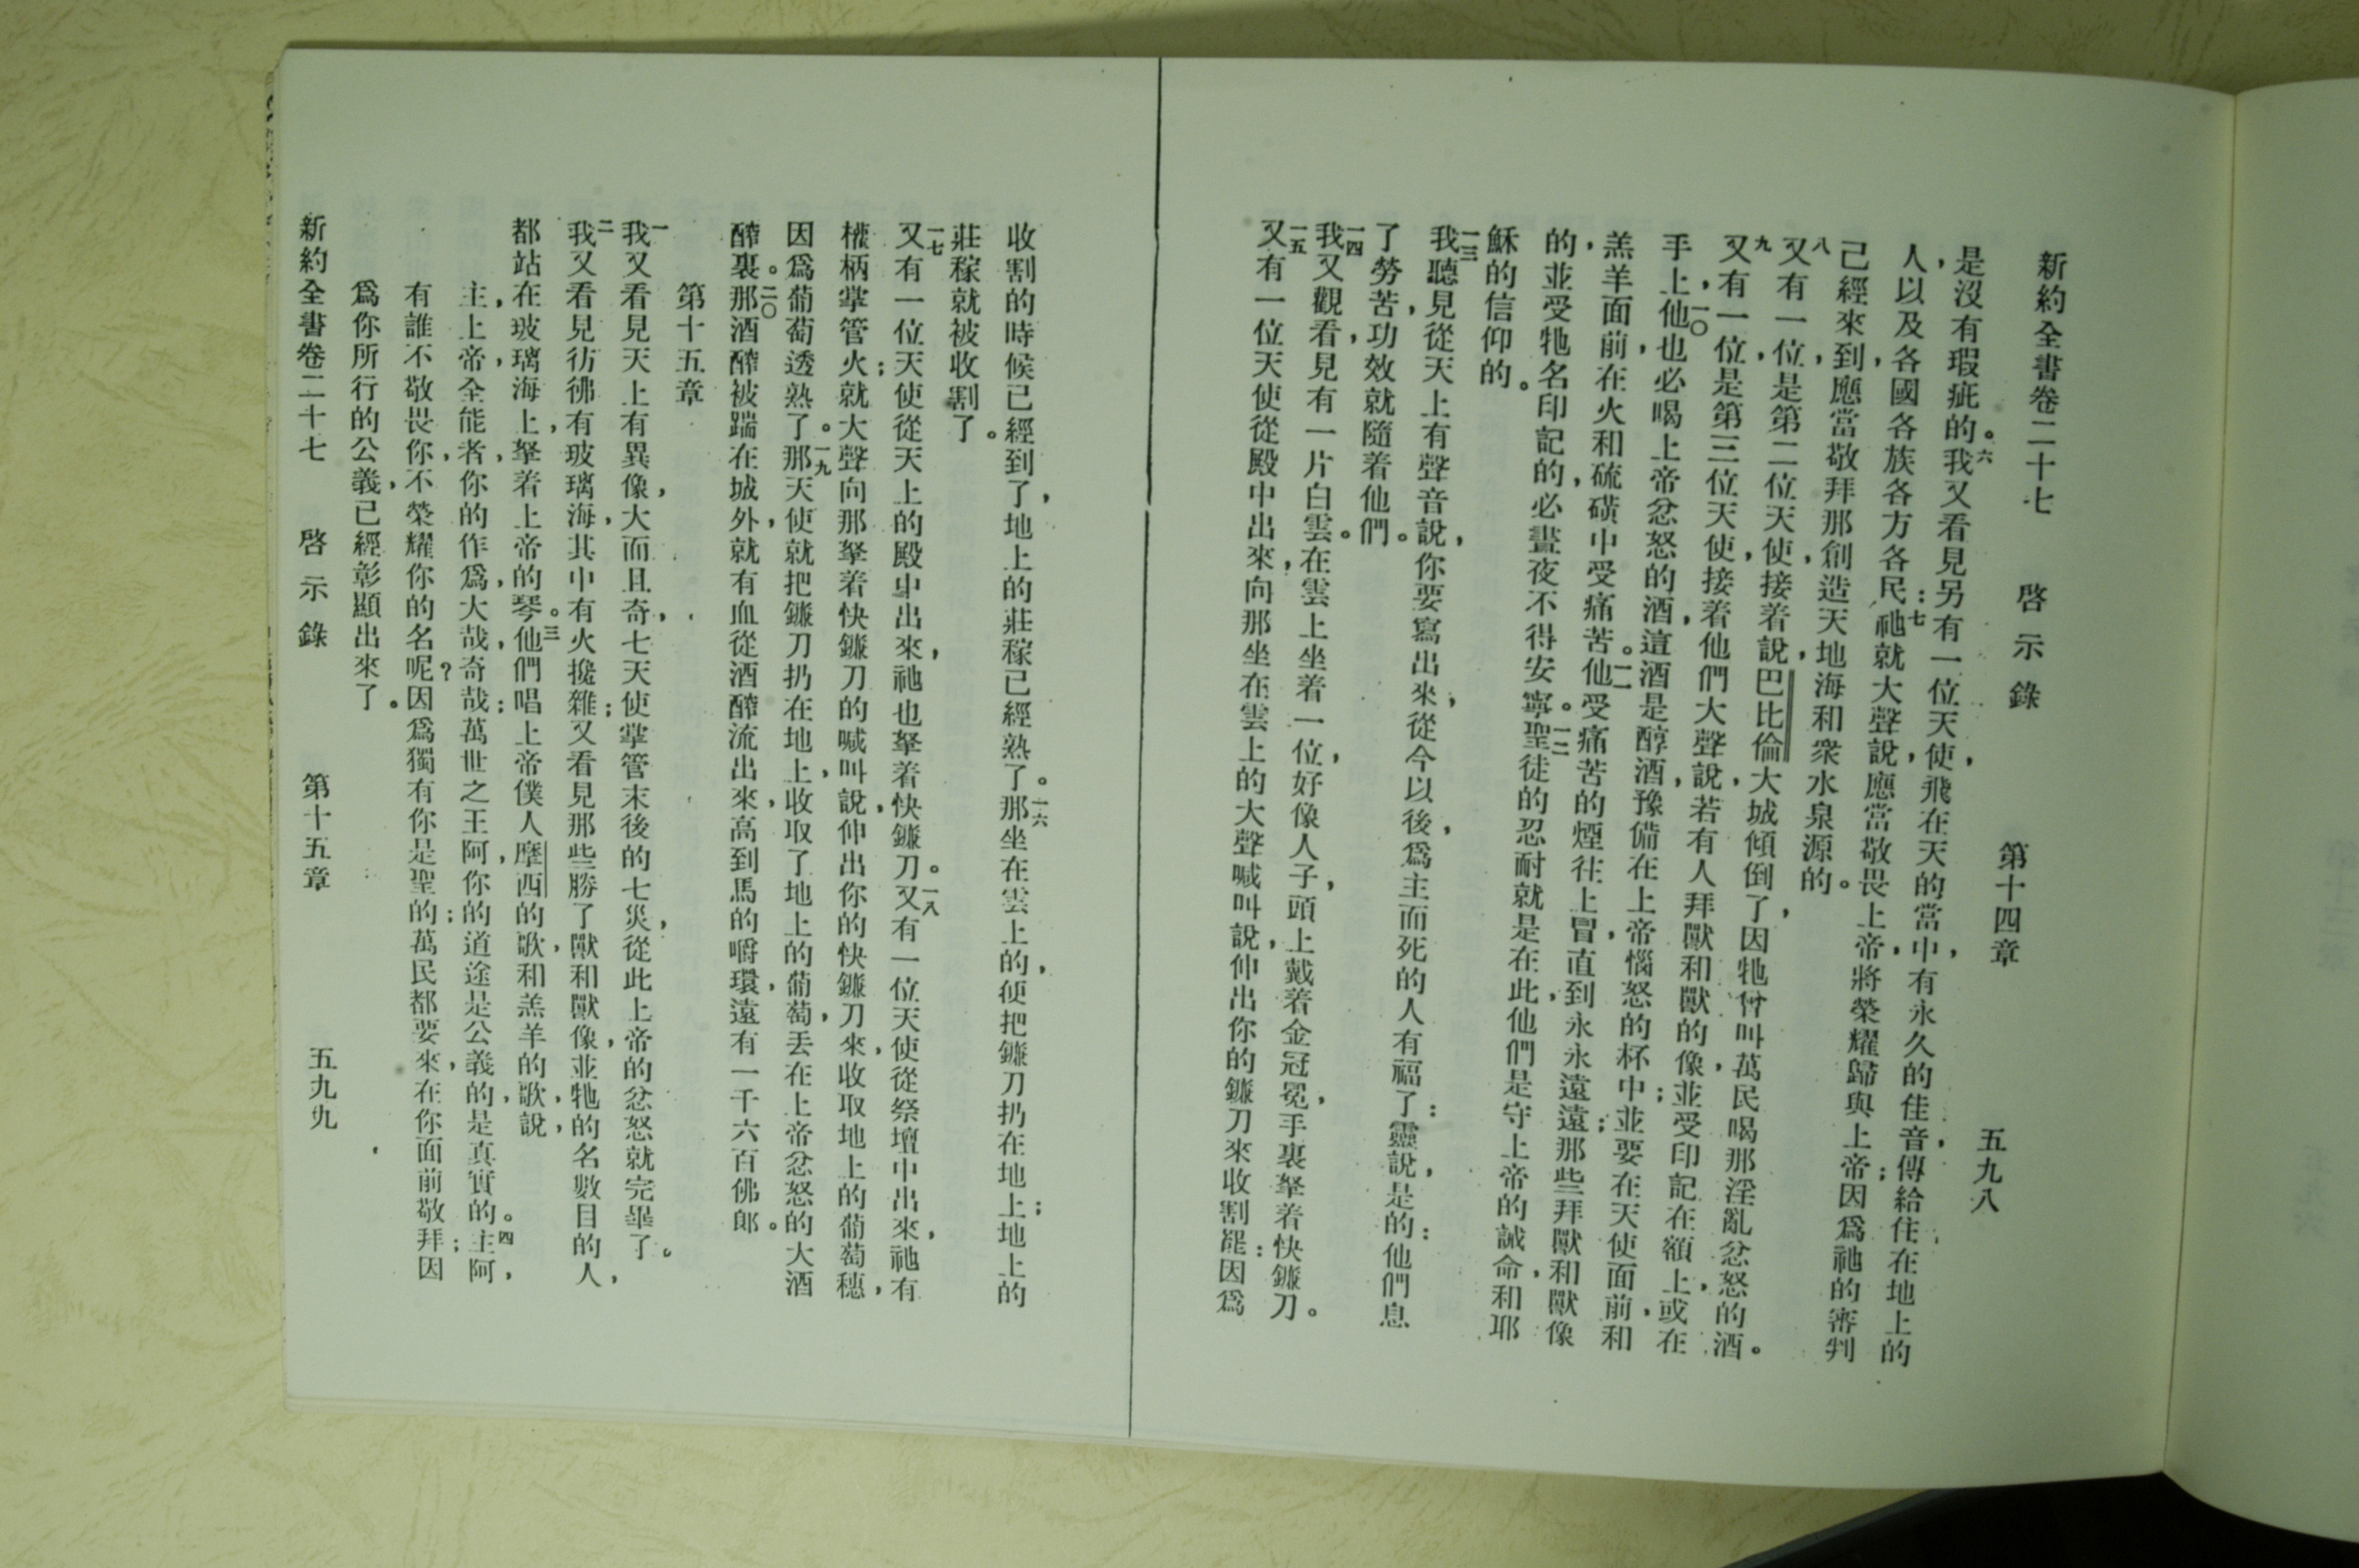 新約全書卷二十七 啓示錄 第十四章 五九八
是沒有瑕疵的。六我又看見另有一位天使，飛在天的當中，有永久的佳音，傳給住在地上的
人，以及各國各族各方各民：七祂就大聲說，應當敬畏上帝，將榮耀歸與上帝；因爲祂的審判
已經來到，應當敬拜那創造天地海和衆水泉源的。
八又有一位，是第二位天使，接着說，巴比倫大城傾倒了，因牠曾叫萬民喝那淫亂忿怒的酒。
九又有一位，是第三位天使，接着他們大聲說，若有人拜獸和獸的像，並受印記在額上，或在
手上，一〇他也必喝上帝忿怒的酒，這酒是醇酒，豫備在上帝惱怒的杯中；並要在天使面前，和
羔羊面前，在火和硫磺中受痛苦。一一他受痛苦的煙往上冒，直到永永遠遠；那些拜獸和獸像
的，並受牠名印記的，必晝夜不得安寧。一二聖徒的忍耐就是在此，他們是守上帝的誡命，和耶
穌的信仰的。
一三我聽見從天上有聲音說，你要寫出來，從今以後，爲主而死的人有福了：靈說，是的：他們息
了勞苦，功效就隨着他們。
一四我又觀看，看見有一片白雲。在雲上坐着一位好像人子，頭上戴着金冠冕，手裏拏着快鐮刀。
一五又有一位天使從殿中出來，向那坐在雲上的大聲喊叫說，伸出你的鐮刀來收割罷：因爲
收割的時候已經到了，地上的莊稼已經熟了。一六那坐在雲上的，便把鐮刀扔在地上；地上的
莊稼就被收割了。
一七又有一位天使從天上的殿中出來，祂也拏着快鐮刀。一八又有一位天使從祭壇中出來，祂有
權柄掌管火；就大聲向那拏着快鐮刀的喊叫說，伸出你的快鐮刀來，收取地上的葡萄穗，
因爲葡萄透熟了。一九那天使就把鐮刀扔在地上，收取了地上的葡萄，丟在上帝忿怒的大酒
醡裏。二〇那酒醡被踹在城外，就有血從酒醡流出來，高到馬的嚼環，遠有一千六百佛郎。
第十五章
一我又看見天上有異像，大而且奇，七天使掌管末後的七災，從此上帝的忿怒就完畢了。
二我又看見彷彿有玻璃海，其中有火攙雜；又看見那些勝了獸和獸像，並牠的名數目的人，
都站在玻璃海上，拏着上帝的琴。三他們唱上帝僕人摩西的歌，和羔羊的歌，說，
主，上帝，全能者，你的作爲，大哉，奇哉；萬世之王阿，你的道途是公義的，是真實的。四主阿，
有誰不敬畏你，不榮耀你的名呢？因爲獨有你是聖的；萬民都要來，在你面前敬拜；因
爲你所行的公義，已經彰顯出來了。
新約全書卷二十七 啓示錄 第十五章 五九九